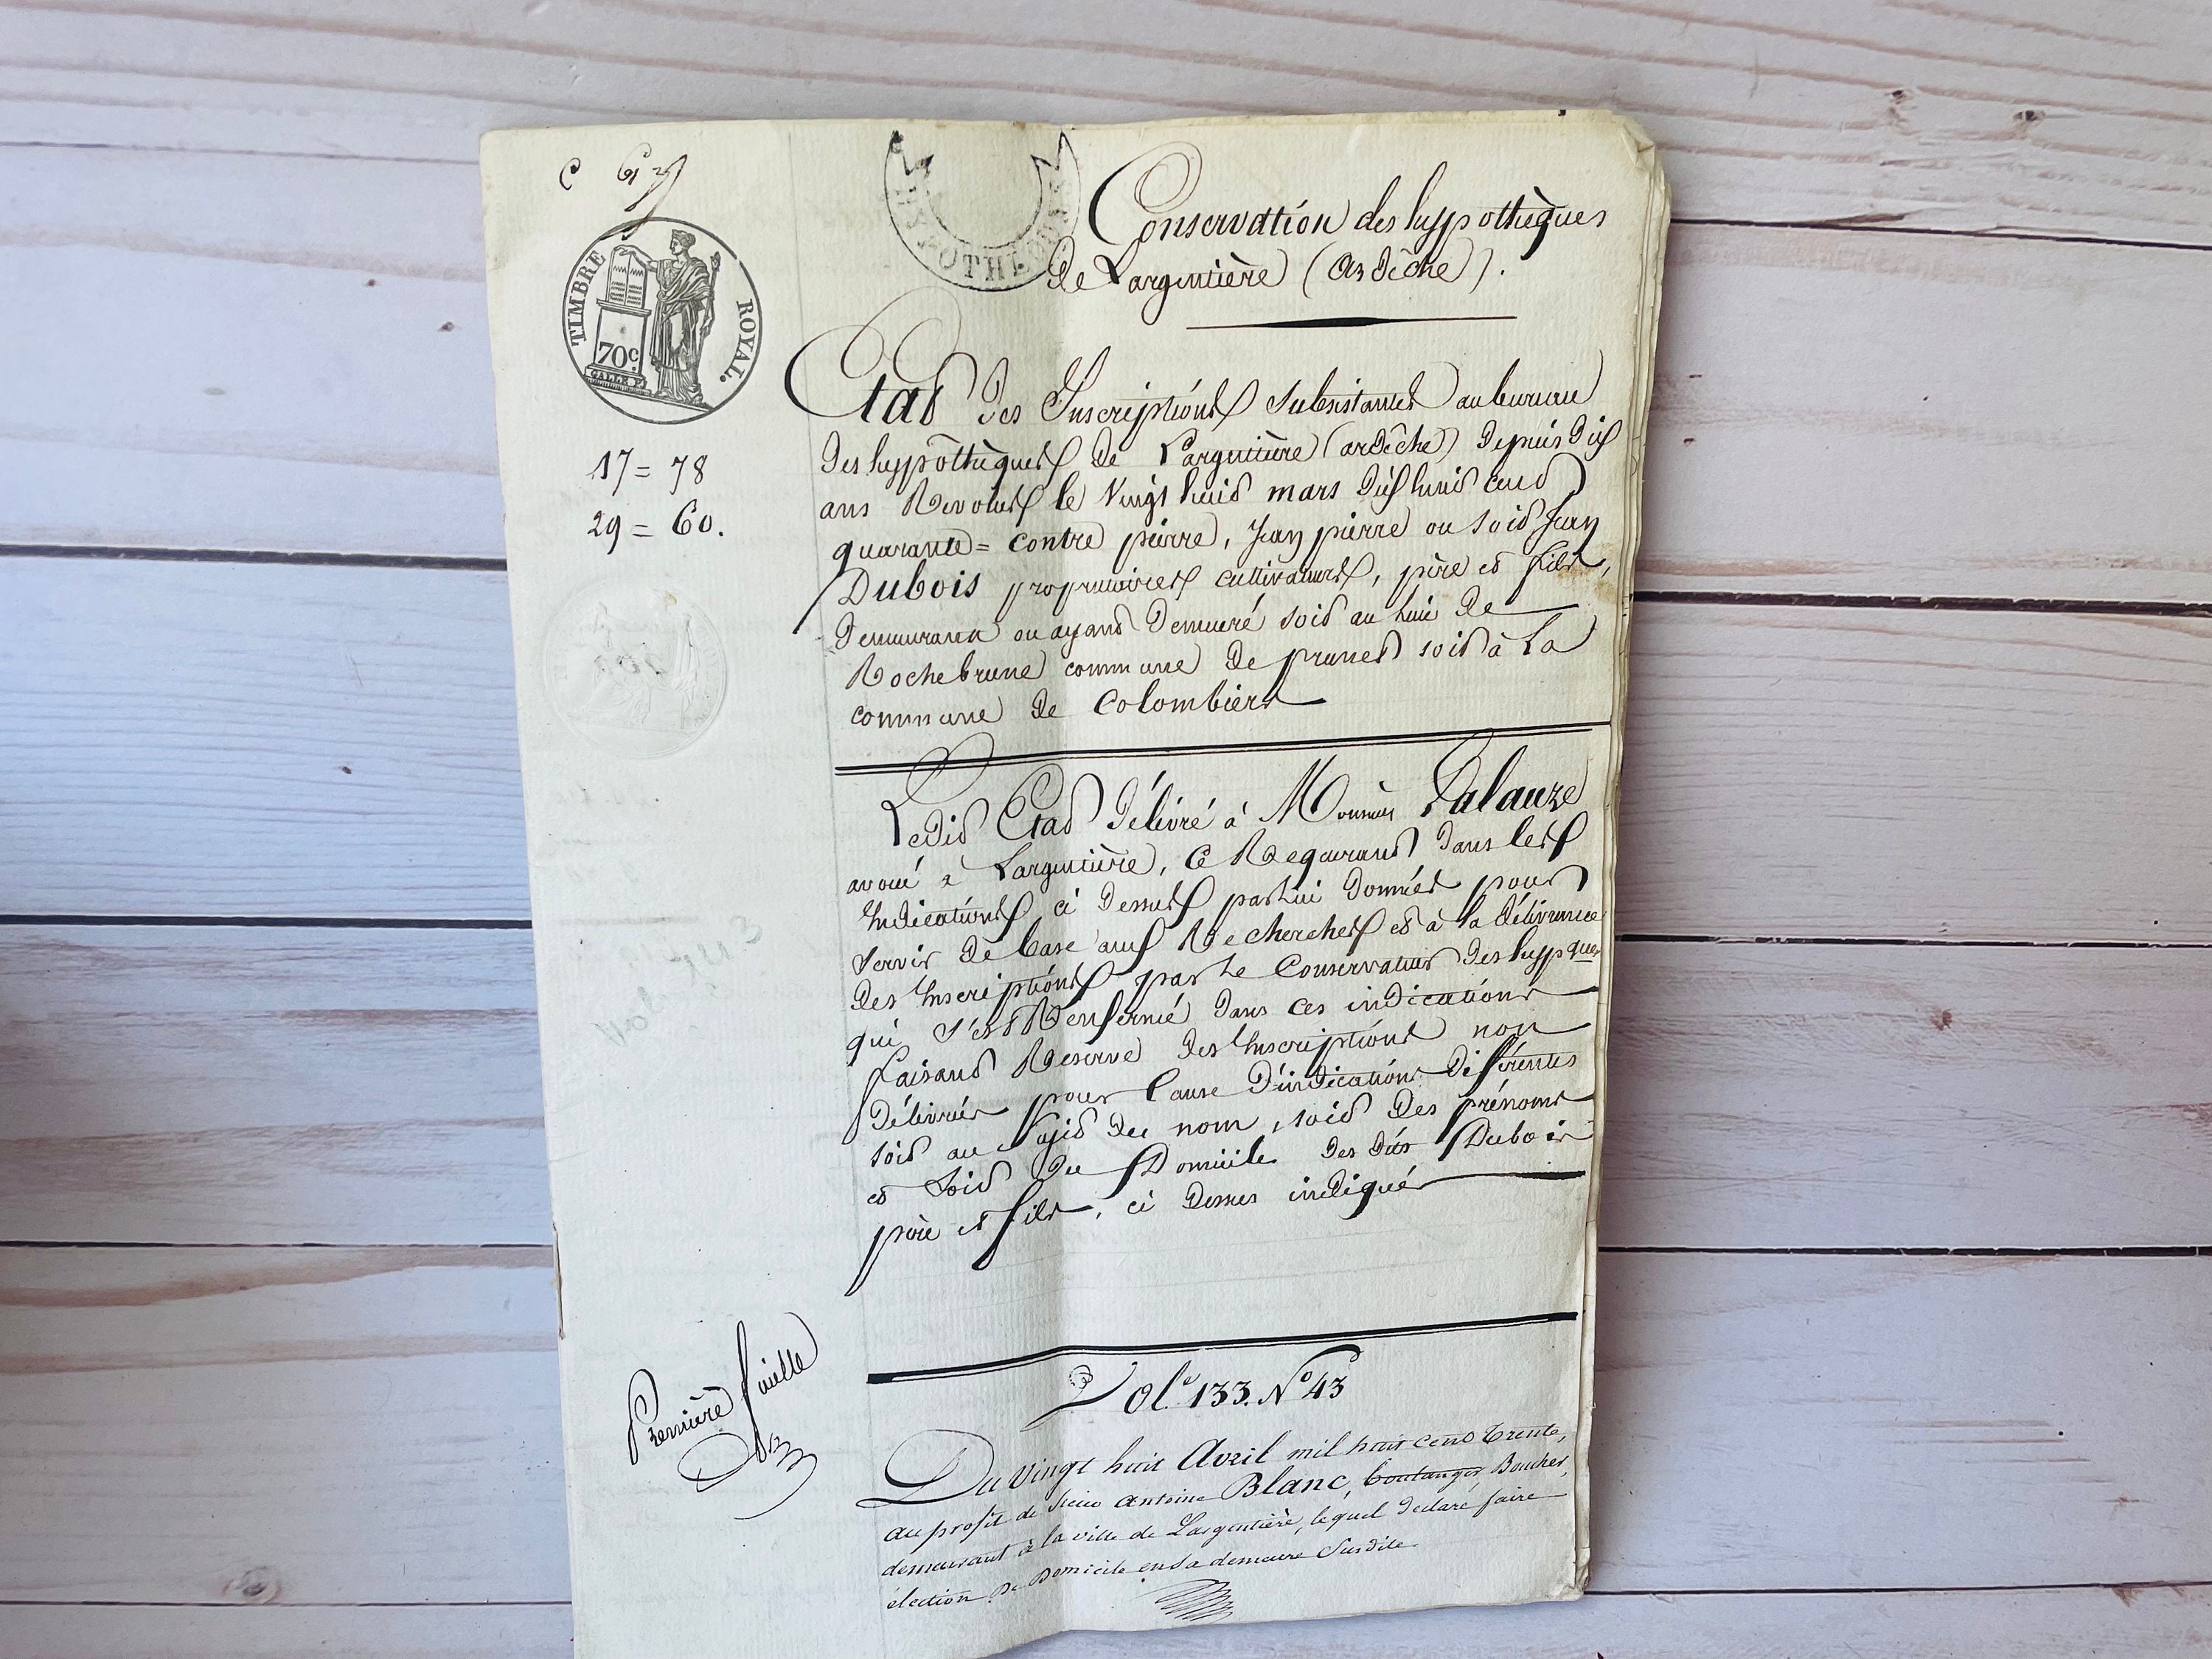 TIMBRE ROYAL.
70c.
HYPOTHEQUES
17 = 78
29 = 60.
Conservation des hypothèques
de Largentière (Ardêche).
Etat des Inscriptions subsistantes au bureau
des hypôthèques de Largentière (ardêche) depuis dix
ans Revolus le vingt huit mars dix huit cent
quarante = contre pierre, Jean pierre ou soit Jean
Dubois propriétaires cultivateurs, père et fils,
demeurant ou ayant demeuré soit au lieu de
Rochebrune commune de prunet soit à La
commune de Colombiers
Ledit Etat délivré à Monsieur Lalauze
avoué à Largentière, ce Requerant dans les
Indications ci dessus par lui données pour
servir de base aux Recherches et à la délivrance
des Inscriptions par le Conservateur des hypques
qui s'est Renfermé dans ces indications
faisant Reserve des Inscriptions non
délivrées pour Cause d'indications différentes
soit au sujet du nom, soit des prénoms
et soit du Domicile des dits Dubois
père et fils, ci dessus indiqués
Première feuille
Vol. 133. No 43
Du vingt huit Avril mil huit cent trente,
au profit de sieur Antoine Blanc, boulanger Boucher,
demeurant à la ville de Largentière, lequel déclare faire
élection de Domicile en sa demeure susdite